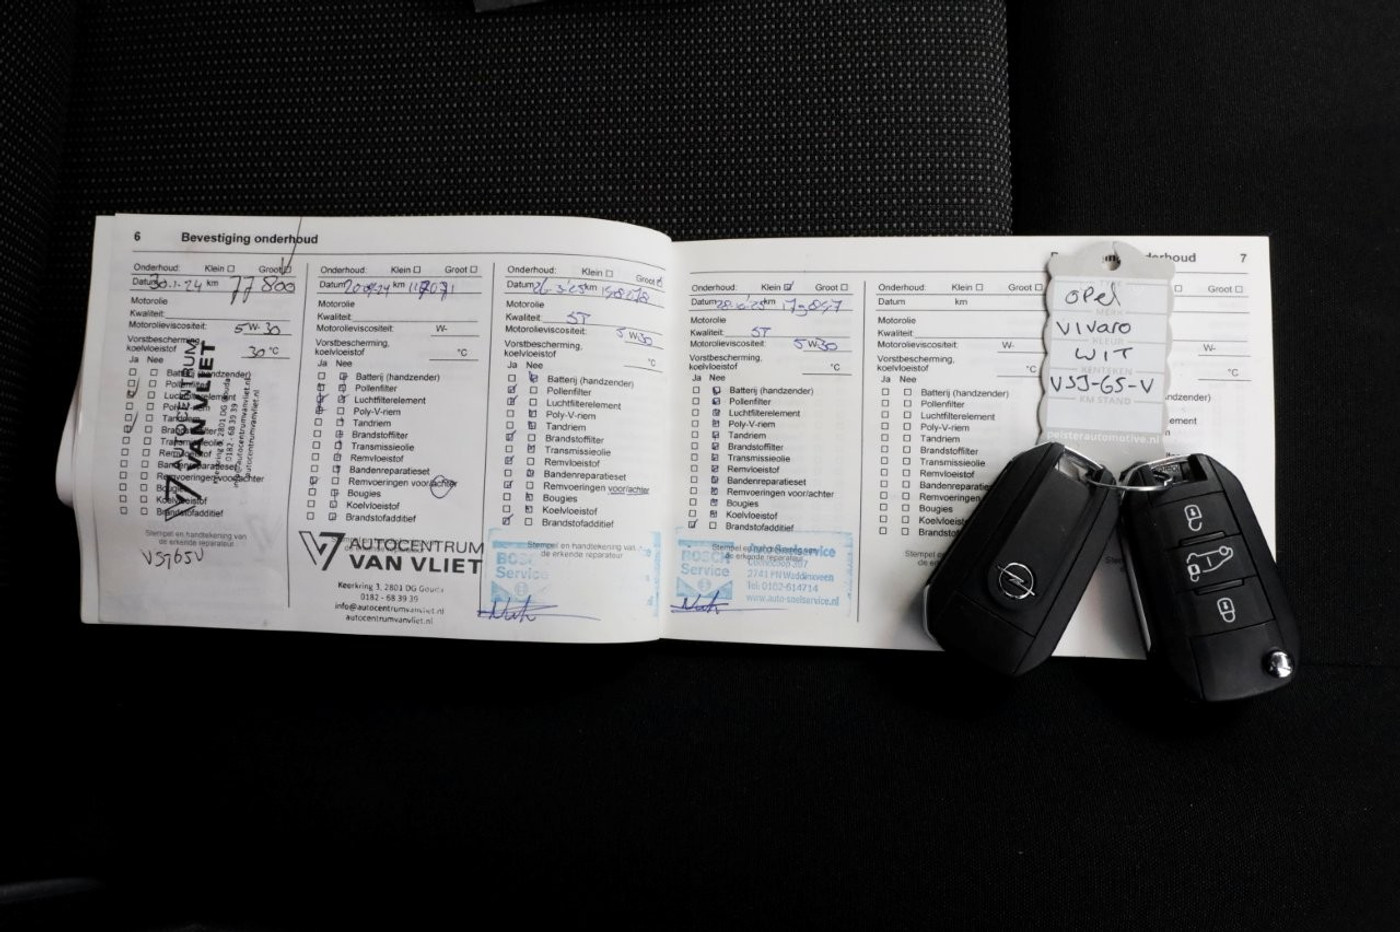 6 Bevestiging onderhoud
Onderhoud: Klein ☐ Groot ☑
Datum 30-1-24 km 77800
Motorolie
Kwaliteit:
Motorolieviscositeit: 5 W- 30
Vorstbescherming, koelvloeistof 30 °C
Ja Nee
Batterij (handzender)
Pollenfilter
Luchtfilterelement
Poly-V-riem
Tandriem
Brandstoffilter
Transmissieolie
Remvloeistof
Bandenreparatieset
Remvoeringen voor/achter
Bougies
Koelvloeistof
Brandstofadditief
Stempel en handtekening van
de erkende reparateur
AUTOCENTRUM
VAN VLIET
Keerkring 3, 2801 DG Gouda
0182 - 68 39 39
info@autocentrumvanvliet.nl
autocentrumvanvliet.nl
VSJ65V
Onderhoud: Klein ☐ Groot ☐
Datum km
Motorolie
Kwaliteit:
Motorolieviscositeit: W-
Vorstbescherming,
koelvloeistof °C
Ja Nee
Batterij (handzender)
Pollenfilter
Luchtfilterelement
Poly-V-riem
Tandriem
Brandstoffilter
Transmissieolie
Remvloeistof
Bandenreparatieset
Remvoeringen voor/achter
Bougies
Koelvloeistof
Brandstofadditief
AUTOCENTRUM
VAN VLIET
Keerkring 3, 2801 DG Gouda
0182 - 68 39 39
info@autocentrumvanvliet.nl
autocentrumvanvliet.nl
Onderhoud: Klein ☐ Groot ☑
Datum km
Motorolie
Kwaliteit: ST
Motorolieviscositeit: 5 W-30
Vorstbescherming,
koelvloeistof °C
Ja Nee
Batterij (handzender)
Pollenfilter
Luchtfilterelement
Poly-V-riem
Tandriem
Brandstoffilter
Transmissieolie
Remvloeistof
Bandenreparatieset
Remvoeringen voor/achter
Bougies
Koelvloeistof
Brandstofadditief
Stempel en handtekening van
de erkende reparateur
BOSCH
Service
7
Onderhoud: Klein ☑ Groot ☐
Datum km
Motorolie
Kwaliteit: ST
Motorolieviscositeit: 5 W-30
Vorstbescherming,
koelvloeistof °C
Ja Nee
Batterij (handzender)
Pollenfilter
Luchtfilterelement
Poly-V-riem
Tandriem
Brandstoffilter
Transmissieolie
Remvloeistof
Bandenreparatieset
Remvoeringen voor/achter
Bougies
Koelvloeistof
Brandstofadditief
BOSCH
Service
Auto Snelservice
2741 PN Waddinxveen
Tel: 0182-614714
www.auto-snelservice.nl
Onderhoud: Klein ☐ Groot ☐
Datum km
Motorolie
Kwaliteit:
Motorolieviscositeit: W-
Vorstbescherming,
koelvloeistof °C
Ja Nee
Batterij (handzender)
Pollenfilter
Luchtfilterelement
Poly-V-riem
Tandriem
Brandstoffilter
Transmissieolie
Remvloeistof
Bougies
W-
°C
opel
MERK
vivaro
KLEUR
WIT
KENTEKEN
VSJ-65-V
KM STAND
peisterautomotive.nl